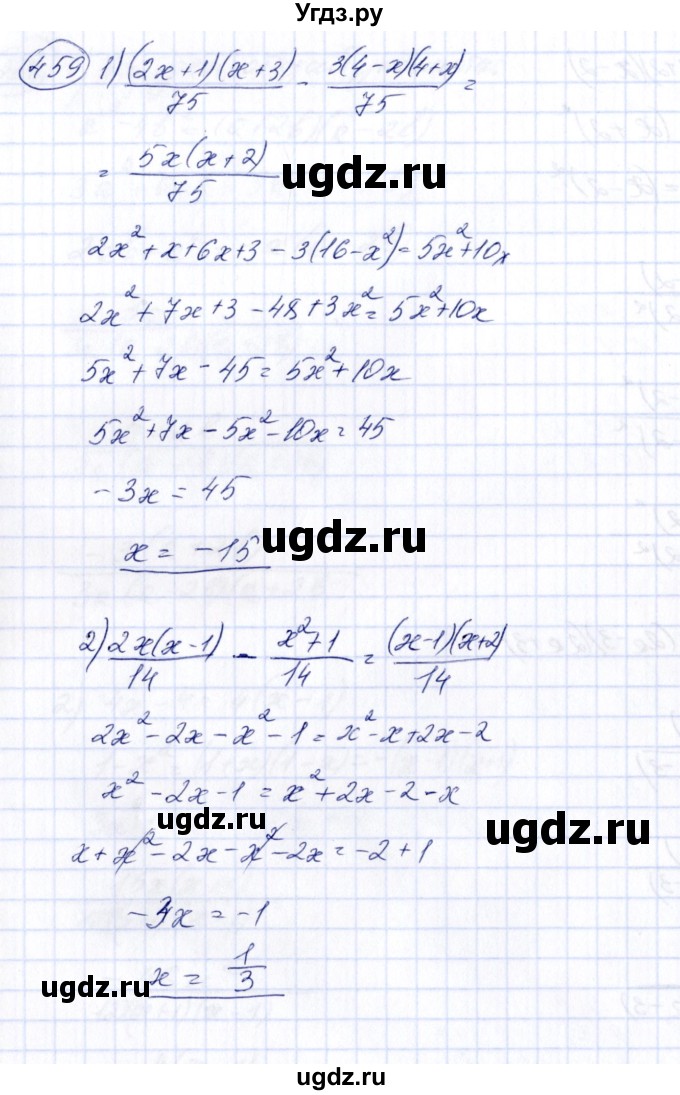 Угдз.ру
459 1) (2x+1)(x+3)/75 - 3(4-x)(4+x)/75 =
= 5x(x+2)/75
ugdz.ru
2x²+x+6x+3-3(16-x²)=5x²+10x
2x²+7x+3-48+3x²=5x²+10x
5x²+7x-45=5x²+10x
5x²+7x-5x²-10x=45
-3x=45
ugdz.ru
x=-15
2) 2x(x-1)/14 - x²+1/14 = (x-1)(x+2)/14
2x²-2x-x²-1=x²-x+2x-2
x²-2x-1=x²+2x-2-x
ugdz.ru
ugdz.ru
x+x²-2x-x²-2x=-2+1
-3x=-1
x=1/3
ugdz.ru
ugdz.ru